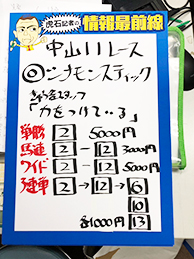 虎石記者の
情報最前線
中山11レース
◎シナモンスティック
スタッフ
「力をつけている」
単勝 2 5000円
馬連 2-12 3000円
ワイド 2-12 5000円
3連単 2→12→6
10
各1000円 13